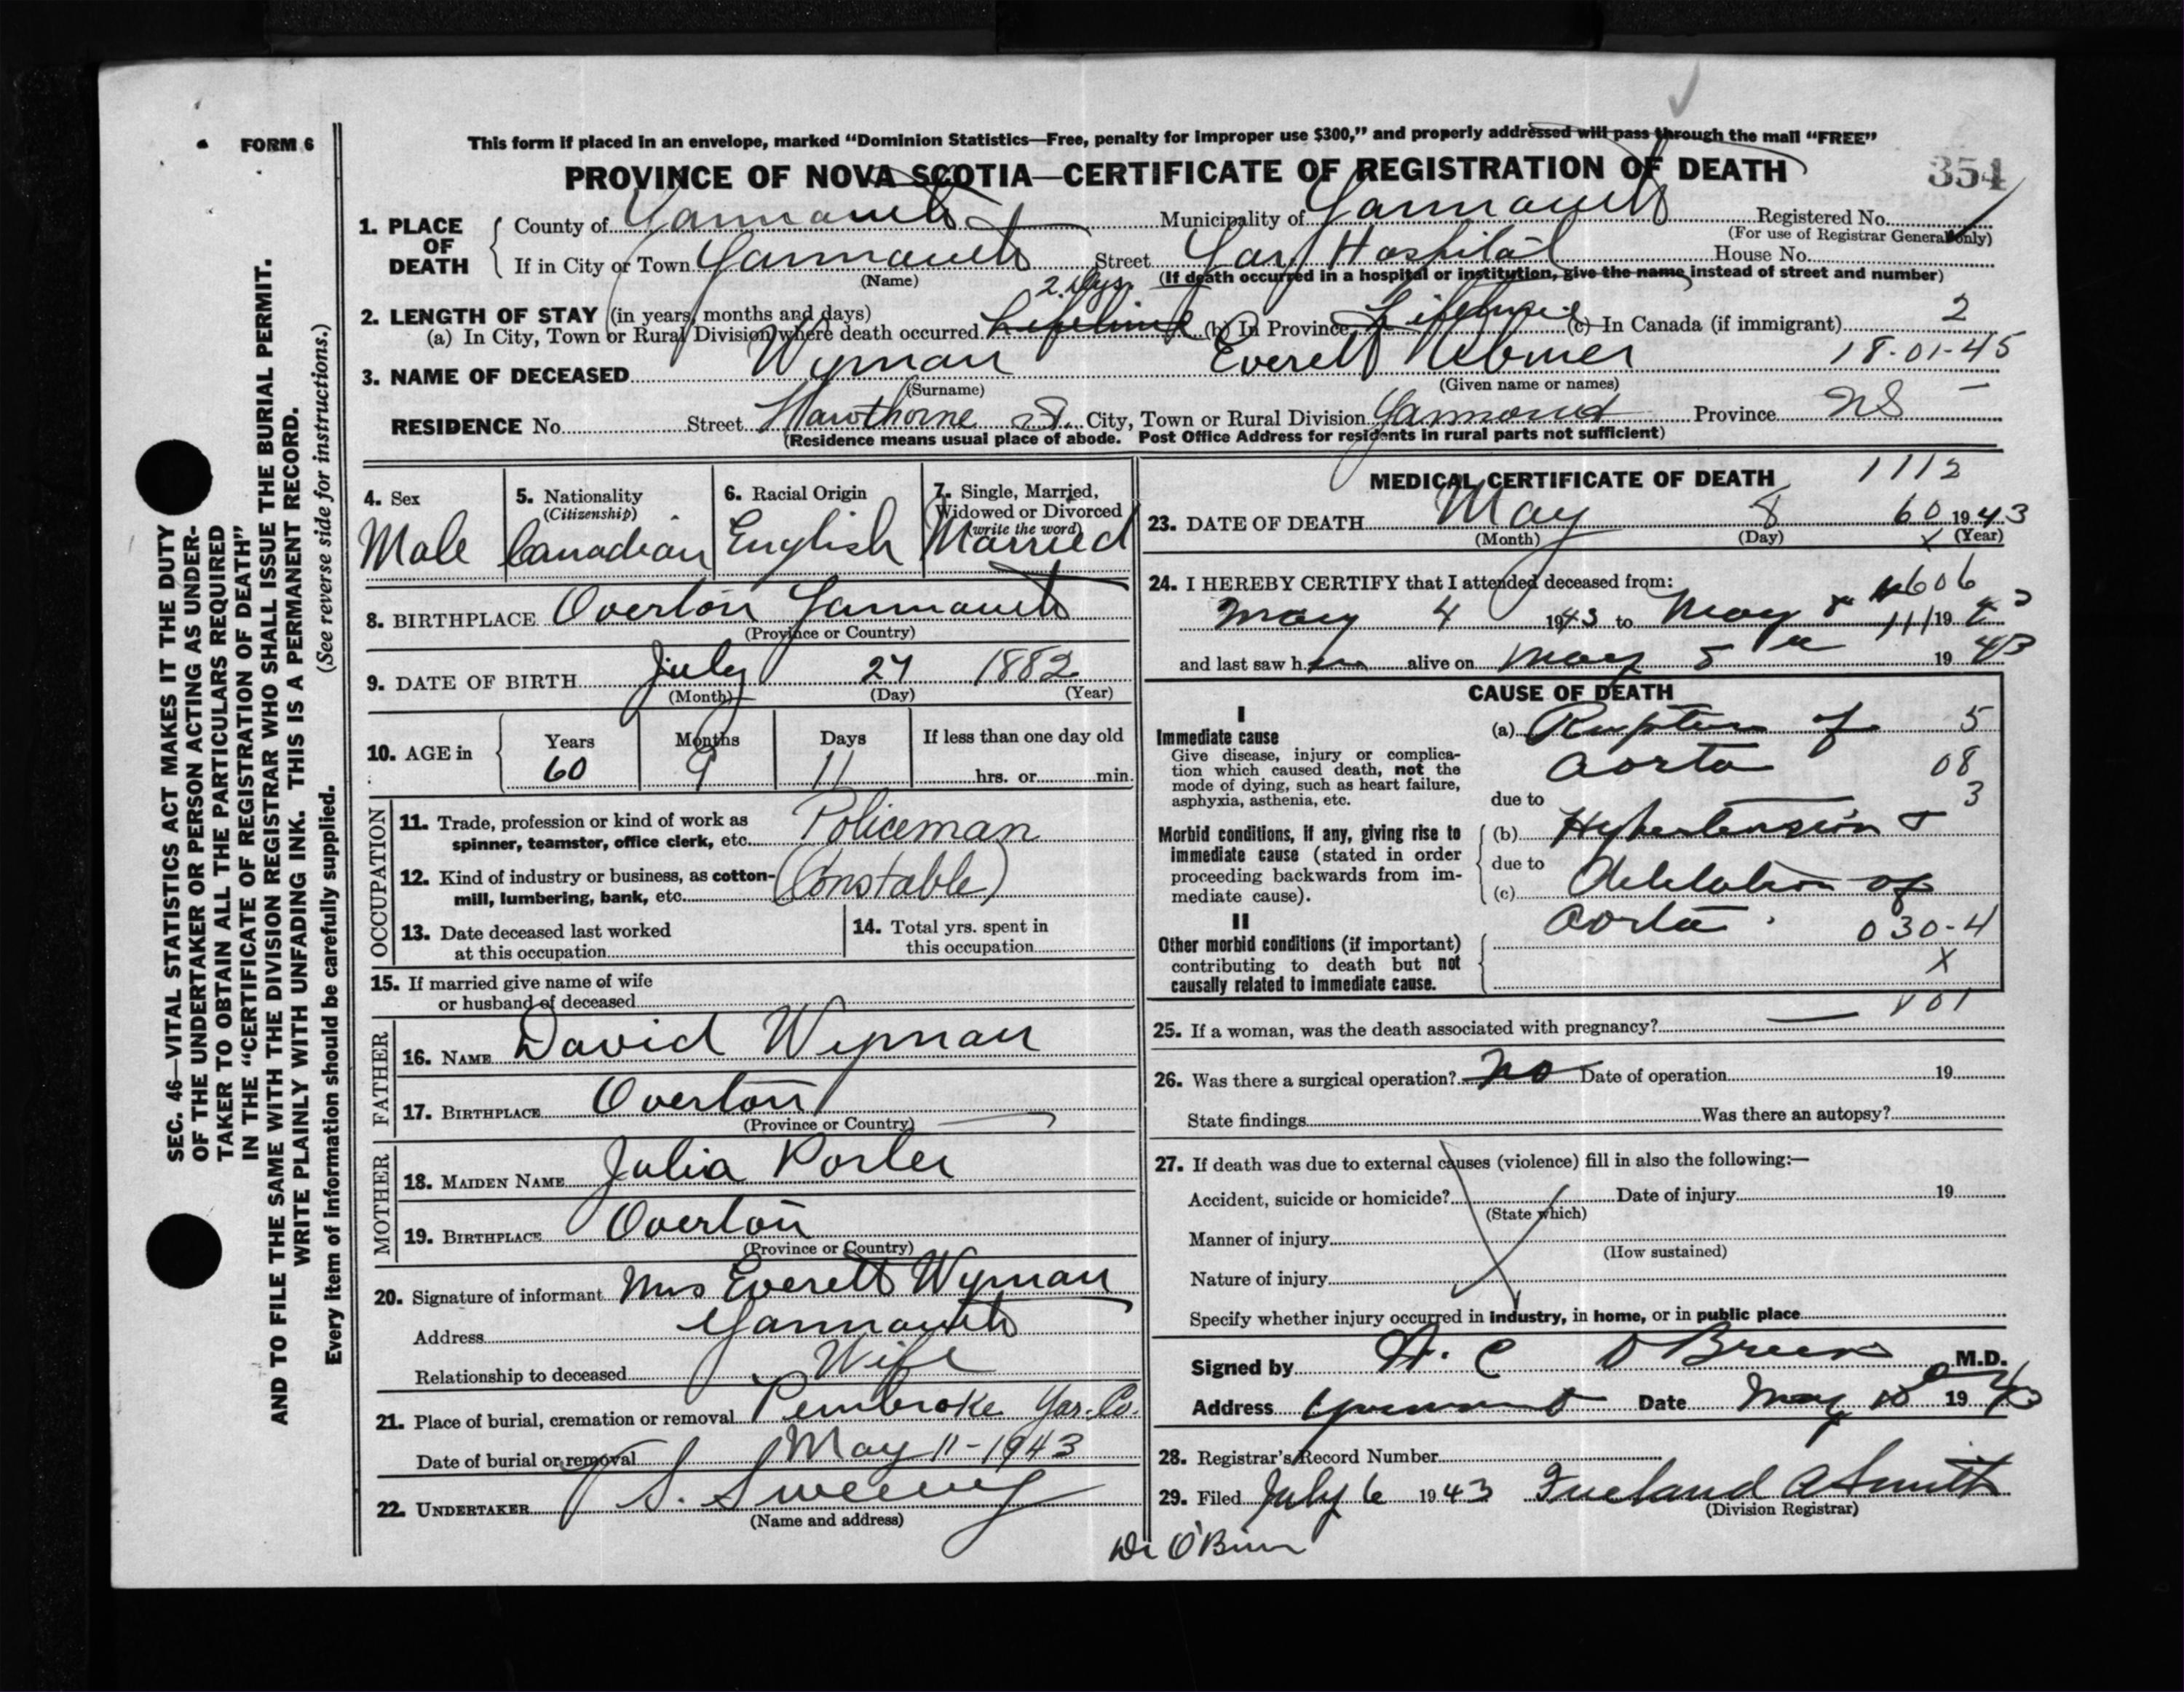 FORM 6
This form if placed in an envelope, marked “Dominion Statistics—Free, penalty for improper use $300,” and properly addressed will pass through the mail “FREE”
PROVINCE OF NOVA SCOTIA—CERTIFICATE OF REGISTRATION OF DEATH
354
1. PLACE OF DEATH
County of Yarmouth Municipality of Yarmouth Registered No.
(For use of Registrar General only)
If in City or Town Yarmouth Street Yar Hospital House No.
(Name) (If death occurred in a hospital or institution, give the name instead of street and number)
2 dys.
2. LENGTH OF STAY (in years, months and days)
(a) In City, Town or Rural Division where death occurred Lifetime (b) In Province Lifetime (c) In Canada (if immigrant) 2
3. NAME OF DECEASED Wyman Everett 18-01-45
(Surname) (Given name or names)
RESIDENCE No. Street Hawthorne St. City, Town or Rural Division Yarmouth Province NS
(Residence means usual place of abode. Post Office Address for residents in rural parts not sufficient)
4. Sex
Male
5. Nationality
(Citizenship)
Canadian
6. Racial Origin
English
7. Single, Married,
Widowed or Divorced
(write the word)
Married
8. BIRTHPLACE Overton Yarmouth
(Province or Country)
9. DATE OF BIRTH July 27 1882
(Month) (Day) (Year)
10. AGE in
Years Months Days If less than one day old
60 9 11 hrs. or min.
OCCUPATION
11. Trade, profession or kind of work as
spinner, teamster, office clerk, etc. Policeman
12. Kind of industry or business, as cotton-
mill, lumbering, bank, etc. (Constable)
13. Date deceased last worked
at this occupation
14. Total yrs. spent in
this occupation
15. If married give name of wife
or husband of deceased
FATHER
16. NAME David Wyman
17. BIRTHPLACE Overton
(Province or Country)
MOTHER
18. MAIDEN NAME Julia Porter
19. BIRTHPLACE Overton
(Province or Country)
20. Signature of informant Mrs Everett Wyman
Address Yarmouth
Relationship to deceased Wife
21. Place of burial, cremation or removal Pembroke Yar. Co.
Date of burial or removal May 11-1943
22. UNDERTAKER S. Sweeney
(Name and address)
MEDICAL CERTIFICATE OF DEATH 1112
23. DATE OF DEATH May 8 60 1943
(Month) (Day) (Year)
X
24. I HEREBY CERTIFY that I attended deceased from:
606
May 4 1943 to May 8 111 1943
and last saw h im alive on May 5 th 1943
CAUSE OF DEATH
I
Immediate cause
Give disease, injury or complica-
tion which caused death, not the
mode of dying, such as heart failure,
asphyxia, asthenia, etc.
(a) Rupture of 5
aorta 08
due to 3
Morbid conditions, if any, giving rise to
immediate cause (stated in order
proceeding backwards from im-
mediate cause).
(b) Hypertension &
due to
(c) dilitation of
aorta. 030-4
II
Other morbid conditions (if important)
contributing to death but not
causally related to immediate cause.
X
101
25. If a woman, was the death associated with pregnancy? —
26. Was there a surgical operation? No Date of operation 19
State findings Was there an autopsy?
27. If death was due to external causes (violence) fill in also the following:—
Accident, suicide or homicide? Date of injury 19
(State which)
Manner of injury
(How sustained)
Nature of injury
Specify whether injury occurred in industry, in home, or in public place
Signed by W. C O'Brien M.D.
Address Yarmouth Date May 10 1943
28. Registrar's Record Number
29. Filed July 6 1943 Freeland A Smith
(Division Registrar)
Dr O'Brien
SEC. 46—VITAL STATISTICS ACT MAKES IT THE DUTY
OF THE UNDERTAKER OR PERSON ACTING AS UNDER-
TAKER TO OBTAIN ALL THE PARTICULARS REQUIRED
IN THE “CERTIFICATE OF REGISTRATION OF DEATH”
AND TO FILE THE SAME WITH THE DIVISION REGISTRAR WHO SHALL ISSUE THE BURIAL PERMIT.
WRITE PLAINLY WITH UNFADING INK. THIS IS A PERMANENT RECORD.
Every item of information should be carefully supplied. (See reverse side for instructions.)